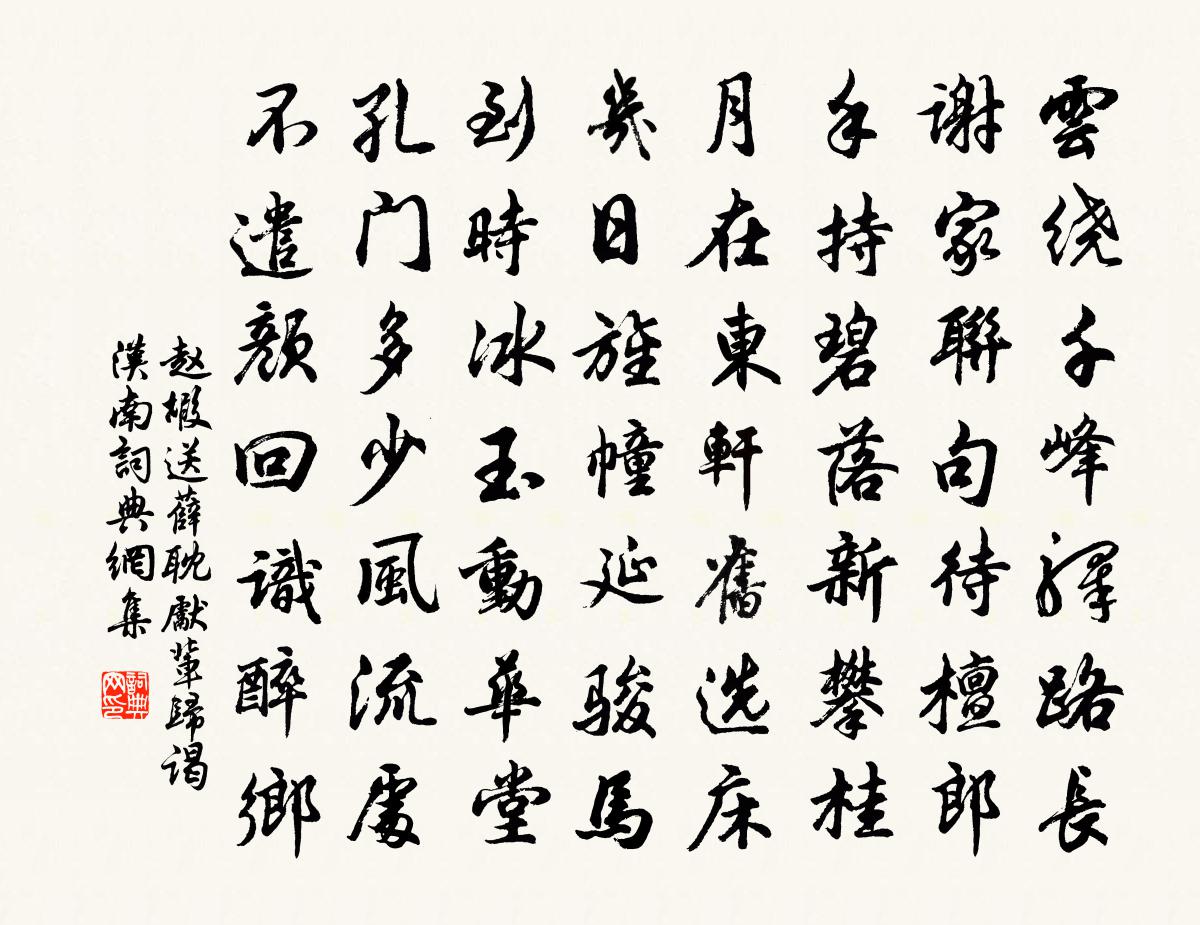 雲绕千峰驛路長
謝家聯句待檀郎
手持碧落新攀桂
月在東軒舊选床
幾日旌幢延骏馬
到時冰玉動華堂
孔门多少風流處
不遣顏回識醉鄉
赵嘏送薛耽獻輩歸谒
漢南詞典網集
詞典网印